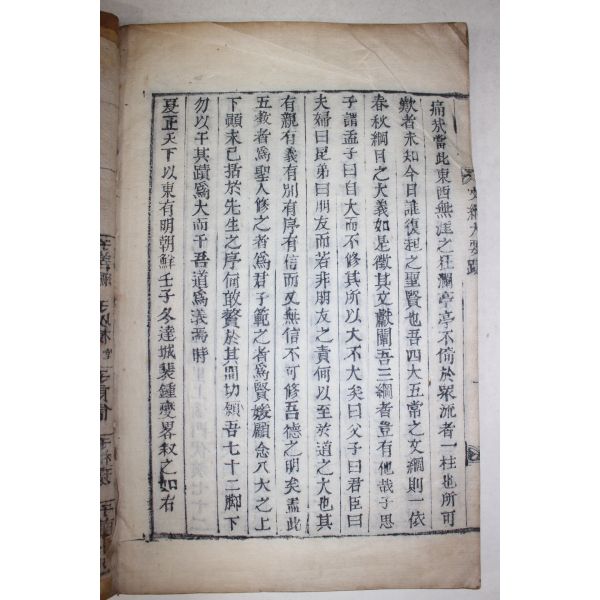 痛狀當此東酉無涯之狂瀾亭亭不偷於衆流者一柱也所可
歎者未知今日誰復起之聖賢也吾四大五常之文綱則一依
春秋綱目之大義如是徵其文獻闡吾三綱者豈有他哉子思
子謂孟子曰自大而不修其所以大不大矣曰父子曰君臣曰
夫婦曰昆弟曰朋友而若非朋友之責何以至於道之大也其
有親有義有別有序有信而又無信不可修吾德之明矣盖此
五敎者爲聖人修之者爲君子範之者爲賢媛顧念八大之上
下顚末已括於先生之序何敢贅於其間切願吾七十二脚下
勿以干其蹟爲大而干吾道爲義焉時
夏正天下以東有明朝鮮壬子冬達城裴鍾夔畧叙之如右
文綱大要跋